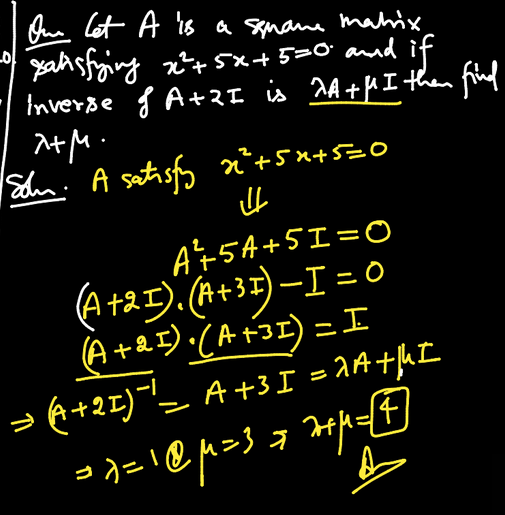 Qu. Let A is a square matrix
satisfying x²+5x+5=0. and if
inverse of A+2I is λA+μI then find
λ+μ.
Soln. A satisfy x²+5x+5=0
⇓
A²+5A+5I=0
(A+2I).(A+3I)-I=0
(A+2I).(A+3I)=I
⇒(A+2I)⁻¹=A+3I=λA+μI
⇒λ=1 & μ=3 ⇒ λ+μ=4